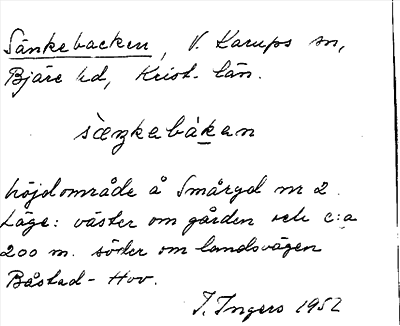 Sänkebacken, V. Karups sn,
Bjäre hd, Krist. län.
sæŋkabàkan
höjdområde å Smårgd nr 2.
Läge: väster om gården och c:a
200 m. söder om landsvägen
Båstad - Hov.
I. Ingers 1952